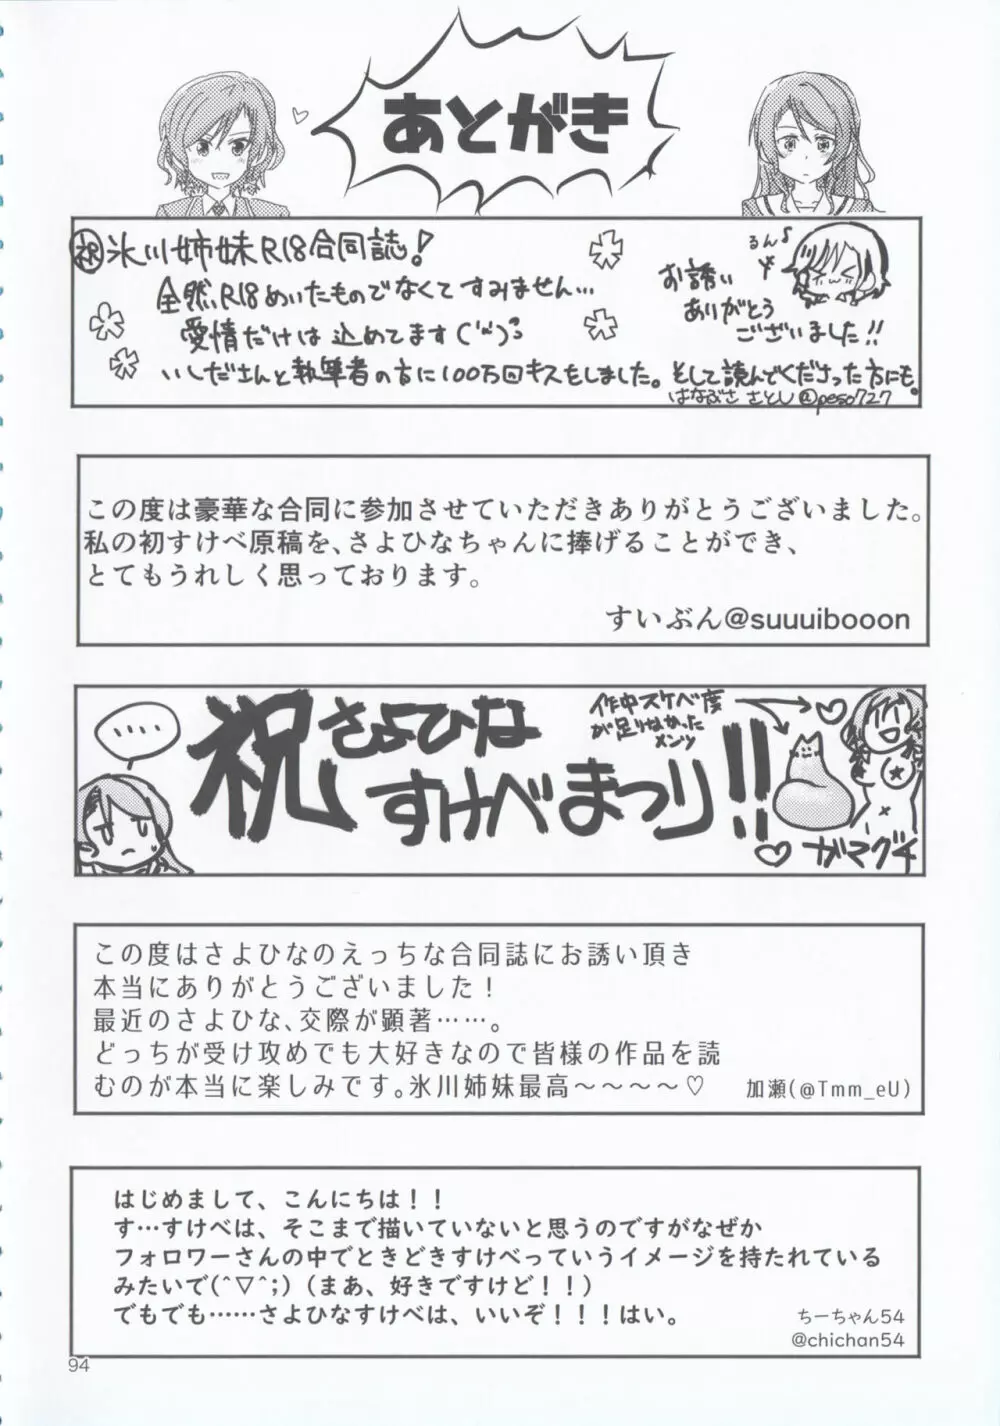 あとがき
㊗氷川姉妹R18合同誌!
全然、R18めいたものでなくてすみません…
愛情だけは込めてます
いしださんと執筆者の方に100万回キスをしました。そして読んでくださった方にも。
るん♪
お誘い
ありがとう
ございました!!
はなぶさ さとし @peso727
この度は豪華な合同に参加させていただきありがとうございました。
私の初すけべ原稿を、さよひなちゃんに捧げることができ、
とてもうれしく思っております。
すいぶん@suuuibooon
‥‥
祝さよひな
すけべまつり!!
作中スケベ度
が足りなかった
メンツ
♡ガマグチ
この度はさよひなのえっちな合同誌にお誘い頂き
本当にありがとうございました！
最近のさよひな、交際が顕著……。
どっちが受け攻めでも大好きなので皆様の作品を読
むのが本当に楽しみです。氷川姉妹最高～～～～♡
加瀬(@Tmm_eU)
はじめまして、こんにちは！！
す…すけべは、そこまで描いていないと思うのですがなぜか
フォロワーさんの中でときどきすけべっていうイメージを持たれている
みたいで(^▽^;)（まあ、好きですけど！！）
でもでも……さよひなすけべは、いいぞ！！！はい。
ちーちゃん54
@chichan54
94